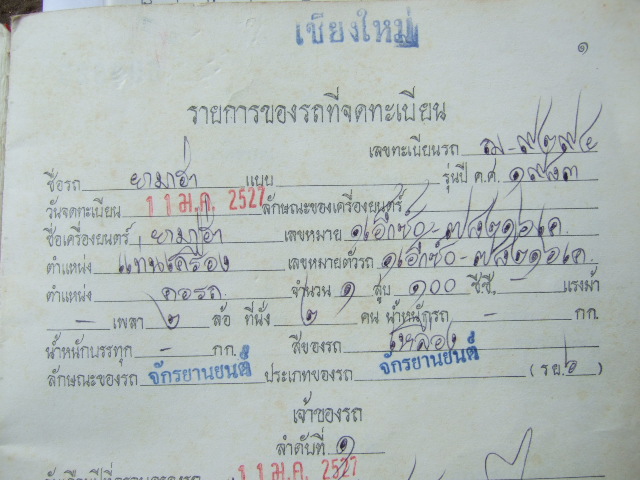 เชียงใหม่
๑
รายการของรถที่จดทะเบียน
เลขทะเบียนรถ
ชื่อรถ ยามาฮ่า แบบ รุ่นปี ค.ศ. ๑๙๘๓
วันจดทะเบียน 11 ม.ค. 2527 ลักษณะของเครื่องยนตร์
ชื่อเครื่องยนตร์ ยามาฮ่า เลขหมาย
ตำแหน่ง แท่นเครื่อง เลขหมายตัวรถ
ตำแหน่ง คอรถ จำนวน ๑ สูบ ๑๐๐ ซีซี. - แรงม้า
- เพลา ๒ ล้อ ที่นั่ง ๒ คน น้ำหนักรถ - กก.
น้ำหนักบรรทุก - กก. สีของรถ
ลักษณะของรถ จักรยานยนต์ ประเภทของรถ จักรยานยนต์ (รย. )
เจ้าของรถ
ลำดับที่ ๑
11 ม.ค. 2527